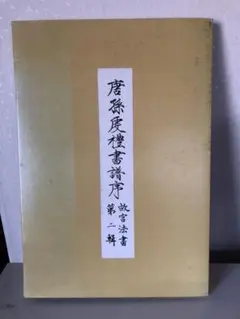 唐孫虔禮書譜序
故宮法書
第二輯